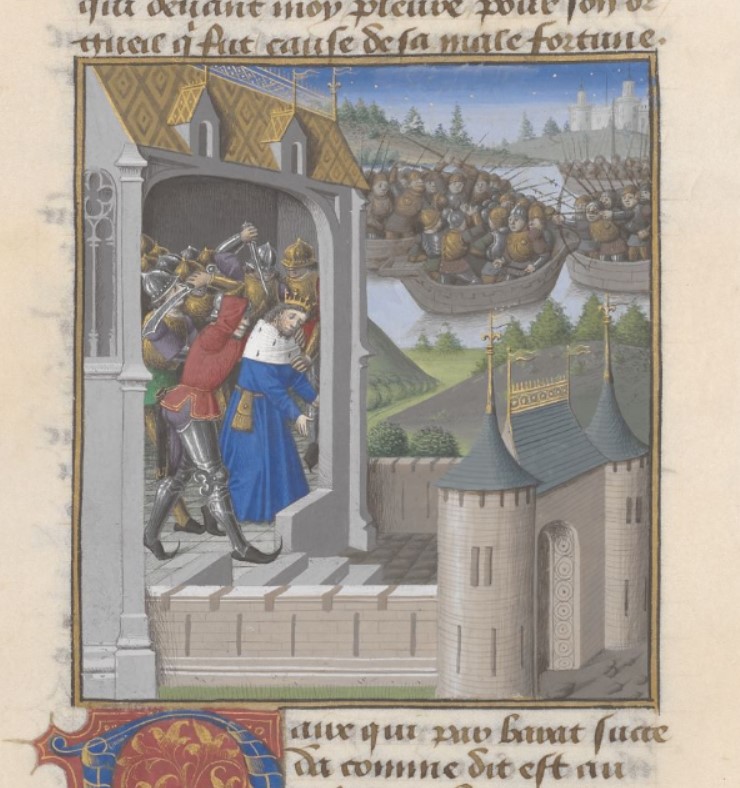 qui deuant moy pleure pour son or
gueil q̓ fut cause de sa male fortune.
aux qui par barat succe
da comme dit est au